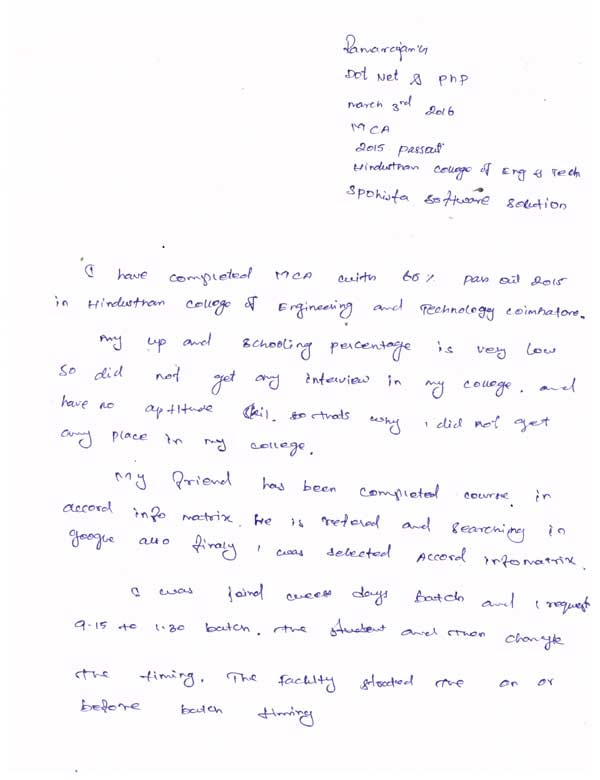 Ramarajan.G
Dot Net & PHP
march 3rd 2016
MCA
2015 passout
Hindusthan College of Eng & Tech
Spohista software solution
I have completed MCA with 66% pass out 2015
in Hindusthan college of Engineering and Technology coimbatore.
My up and schooling percentage is very low
so did not get any interview in my college. and
have no aptitude skil. so thats why i did not get
any place in my college.
My friend has been completed course in
accord info matrix. He is refered and searching in
google also finaly i was selected Accord infomatrix.
I was joind week days batch and i request
9.15 to 1.30 batch. the student and then change
the timing. The faculty started the on or
before batch timing